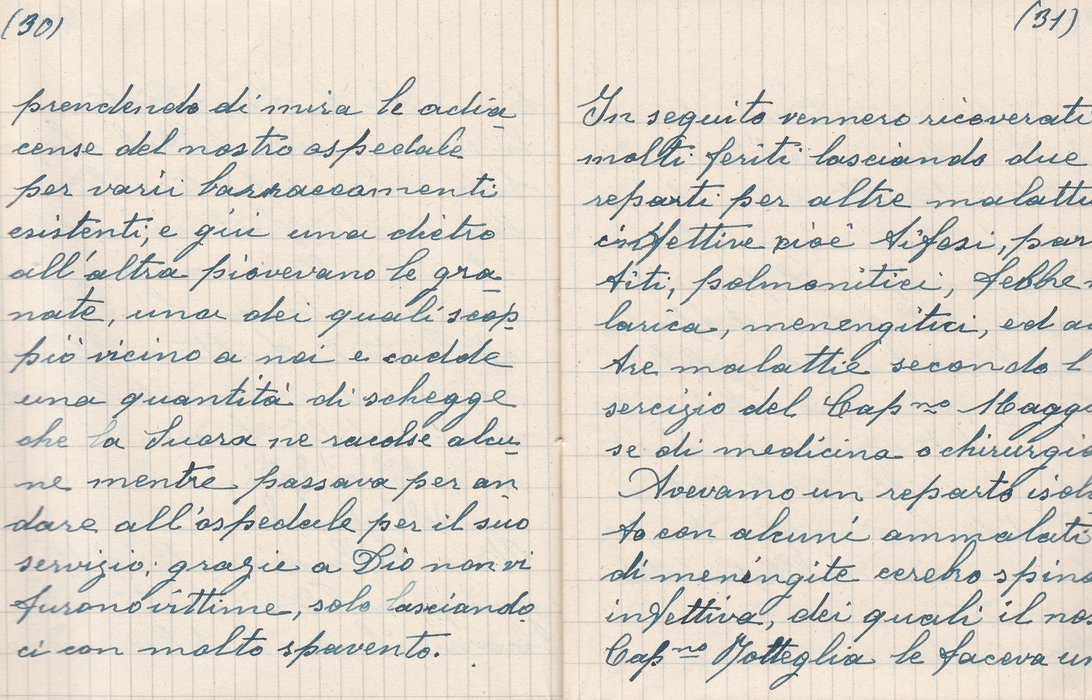 (30)
prendendo di mira le adia
cense del nostro ospedale
per varii barraccamenti
esistenti, e giù una dietro
all'altra piovevano le gra-
nate, una dei quali scop-
piò vicino a noi e cadde
una quantità di schegge
che la Suora ne racolse alcu-
ne mentre passava per an
dare all'ospedale per il suo
servizio; grazie a Dio non vi
furono vittime, solo lasciando
ci con molto spavento.
(31)
In seguito vennero ricoverati
molti feriti lasciando due
reparti per altre malattie
infettive cioè tifosi, par
titi, polmonitici, febbre
larica, menengitici, ed a
tre malattie secondo l
sercizio del Cap.no Magg
se di medicina o chirurgia
Avevamo un reparto isol
to con alcuni ammalati
di meningite cerebro spin
infettiva, dei quali il no
Cap.no le faceva un